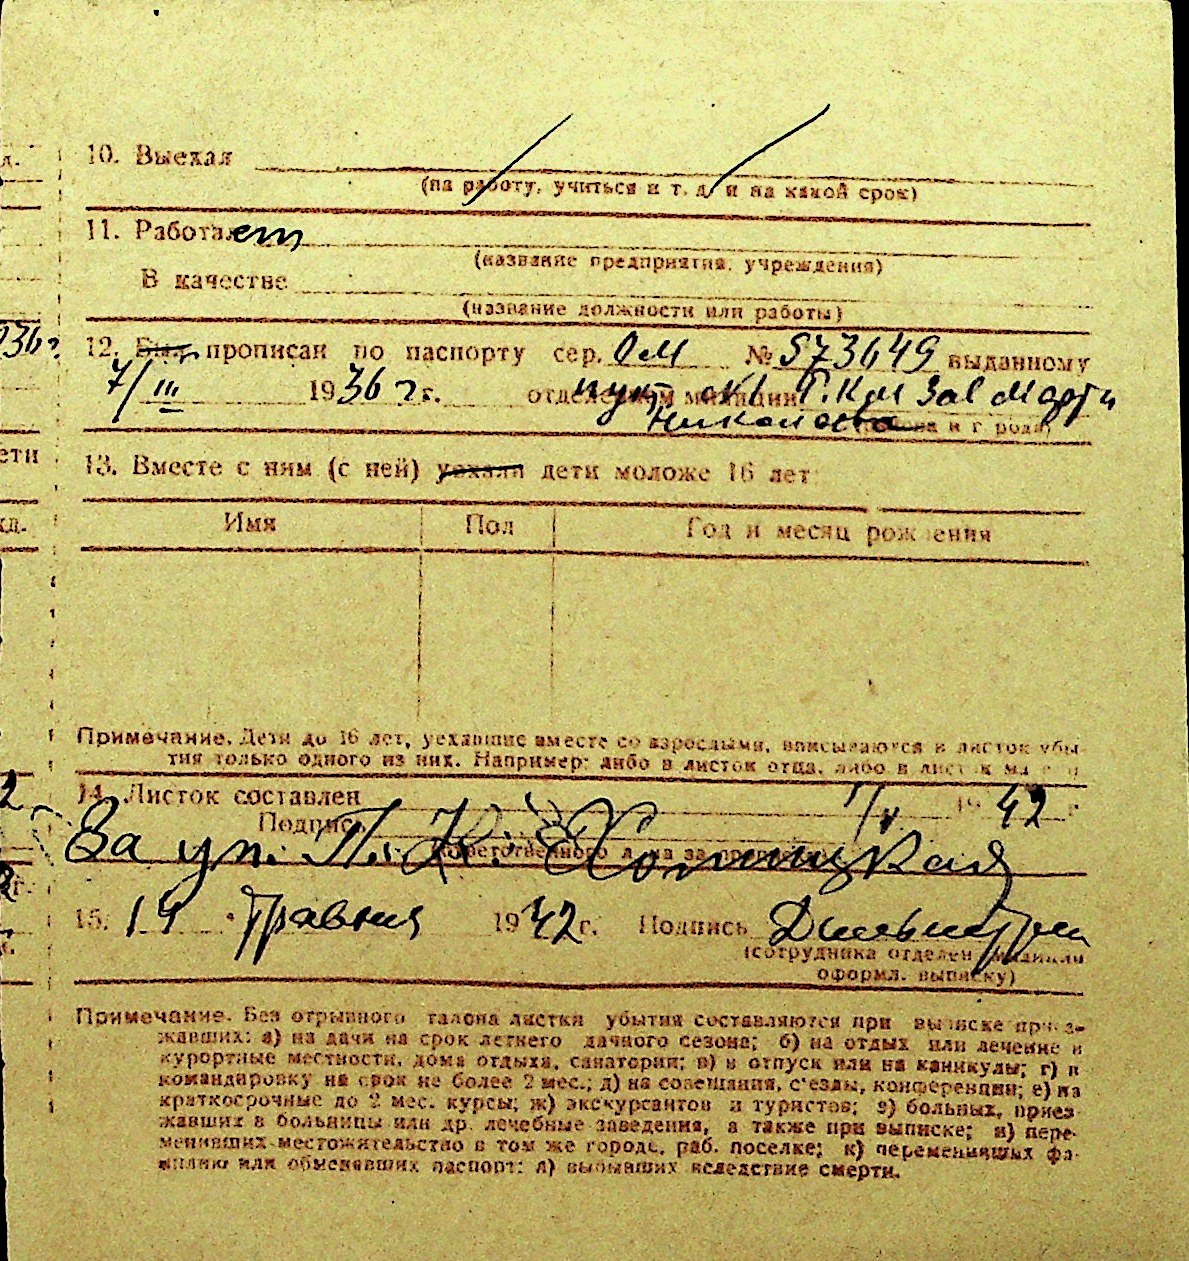 10. Выехал
(на работу, учиться и т. д. и на какой срок)
11. Работает
(название предприятия, учреждения)
В качестве
(название должности или работы)
12. Был прописан по паспорту сер. ОМ № 573649 выданному
7/III 1936 г. отделением милиции
Николаева
13. Вместе с ним (с ней) уехали дети моложе 16 лет
Имя Пол Год и месяц рождения
Примечание. Дети до 16 лет, уехавшие вместе со взрослыми, вписываются в листок убы-
тия только одного из них. Например: либо в листок отца, либо в листок
14. Листок составлен 1/V 1942 г.
Подпись
За уп. П. К.
15. 14 Травня 1942 г. Подпись
(сотрудника отделен. милиции
оформл. выписку)
Примечание. Без отрывного талона листки убытия составляются при выписке приез-
жавших: а) на дачи на срок летнего дачного сезона; б) на отдых или лечение в
курортные местности, дома отдыха, санатории; в) в отпуск или на каникулы; г) в
командировку на срок не более 2 мес.; д) на совещания, с'езды, конференции; е) на
краткосрочные до 2 мес. курсы; ж) экскурсантов и туристов; з) больных, приез-
жавших в больницы или др. лечебные заведения, а также при выписке; и) пере-
менивших местожительство в том же городе, раб. поселке; к) переменивших фа-
милию или обменявших паспорт; л) выбывших вследствие смерти.